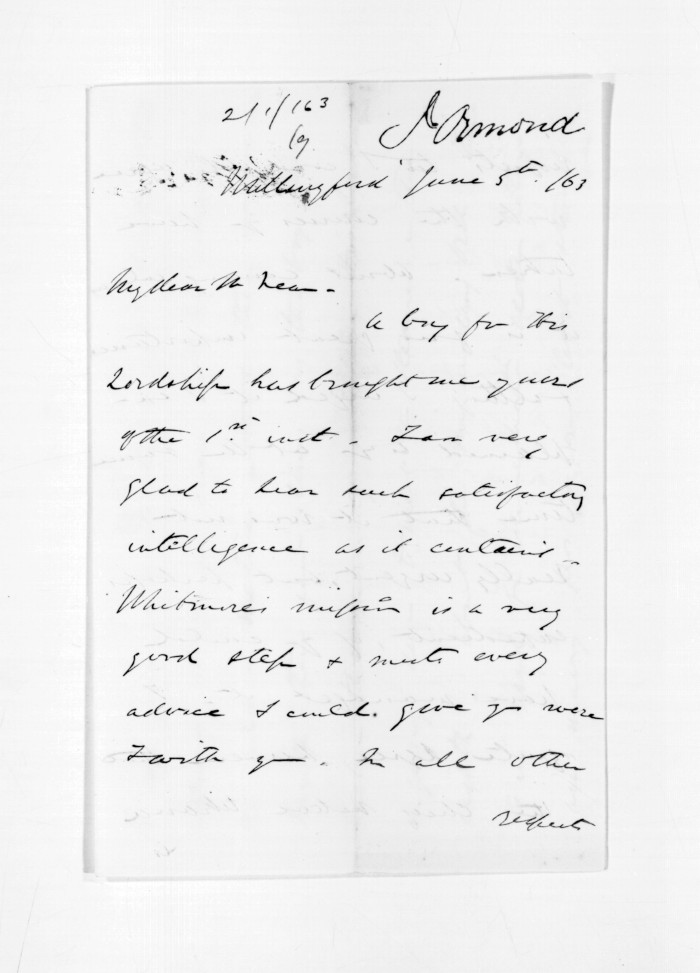 21/1/63
J D Ormond
Wallingford June 5th /63
My dear McLean -
A boy for His
Lordship has brought me yours
of the 1st inst - I am very
glad to hear such satisfactory
intelligence as it contains -
Whitmore's mission is a very
good step & meets every
advice I could give you were
I with you. In all other
respects